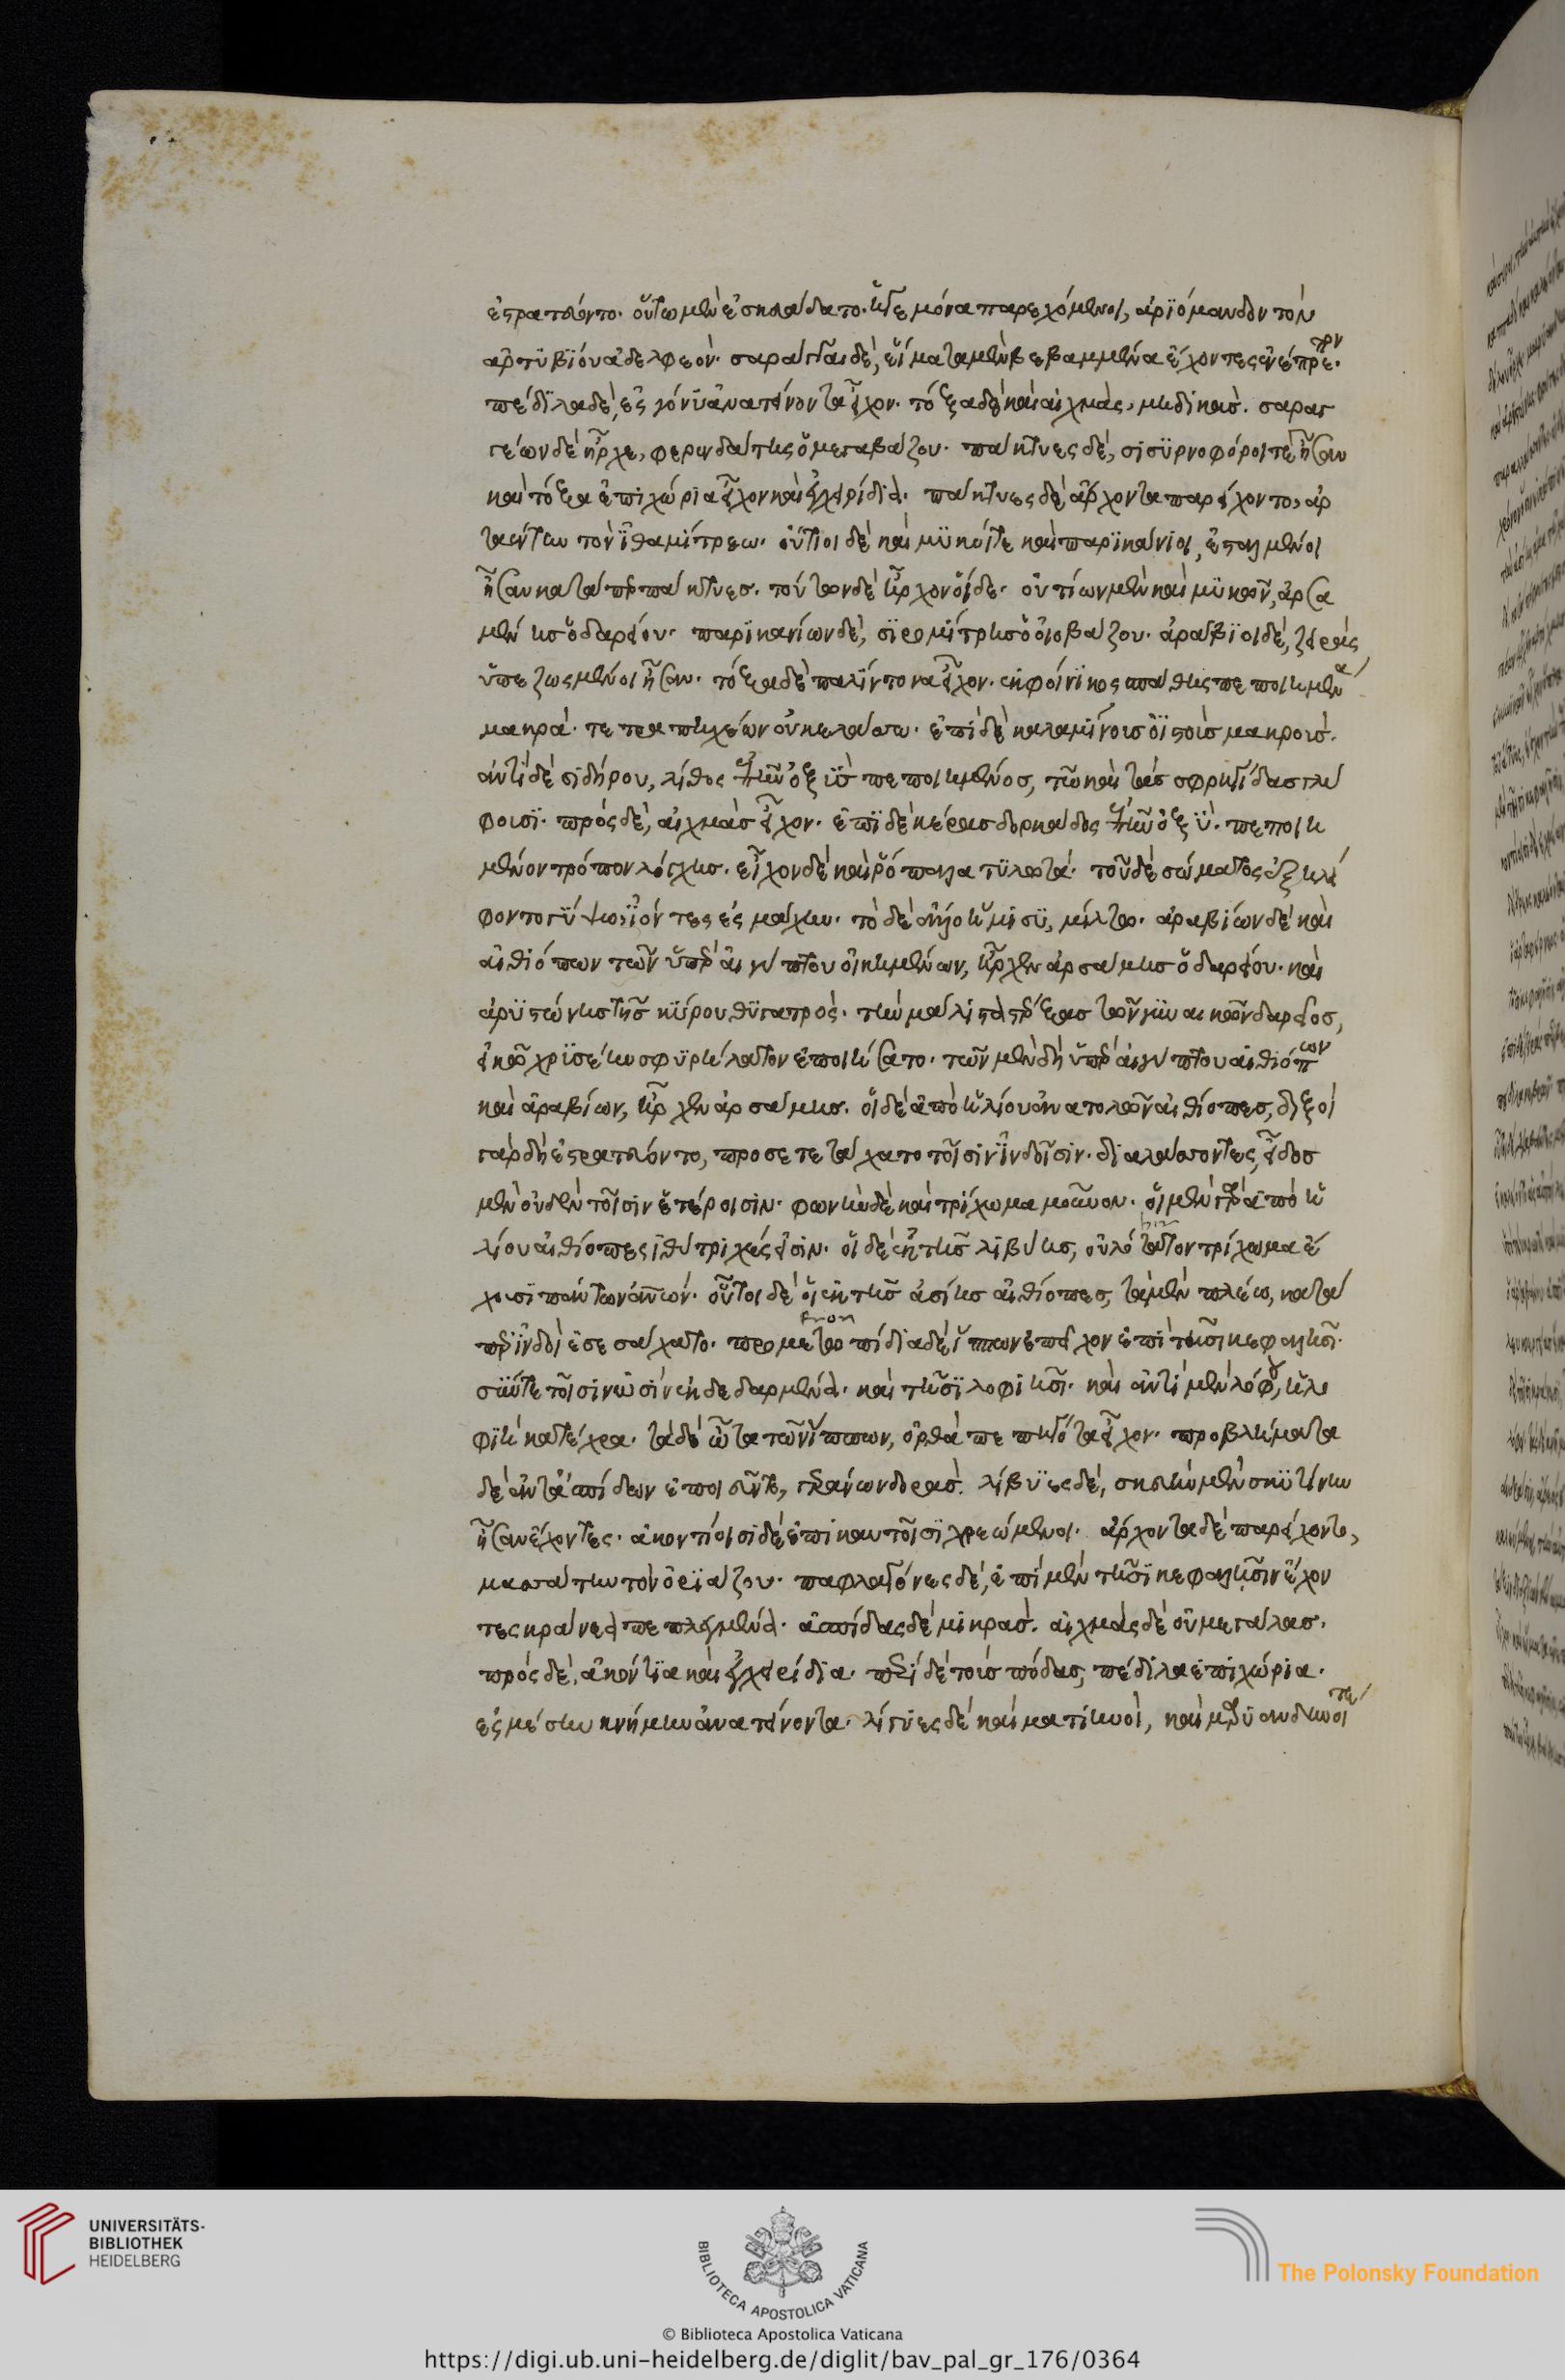 ἐστρατεύοντο. οὕτω μὲν ἐσκευάδατο. ἡγεμόνα παρεχόμενοι, ἀρϊόμανδον τὸν
ἀρτυβίου ἀδελφεόν. σαράγγαι δὲ, εἵματα μὲν βεβαμμένα ἔχοντες ἐνέπρεπον.
πέδϊλα δὲ, ἐς γόνϋ ἀνατείνοντα εἶχον. τόξα δὲ καὶ αἰχμὰς, μηδικάσ. σαραγ
γέων δὲ ἦρχε, φερενδάτης ὁ μεγαβάζου. πάκτυες δὲ, σισϋρνοφόροι τὲ ἦσαν
καὶ τόξα ἐπιχώρια εἶχον καὶ ἐγχειρίδια. πάκτυες δὲ, ἄρχοντα παρείχοντο, ἀρ
ταΰντην τὸν ἰθαμίτρεω. οὔτιοι δὲ καὶ μϋκοί τε καὶ παρϊκάνιοι, ἐσταλμένοι
ἦσαν κατάπερ πάκτυεσ. τούτων δὲ ἦρχον οἵδε. οὐτίων μὲν καὶ μϋκῶν, ἀρσα
μένησ ὁ δαρείου. παρϊκανίων δὲ, σϊρομίτρησ ὁ οἰοβάζου. ἀράβϊοι δὲ, ζειρὰς
ὑπεζωσμένοι ἦσαν. τόξα δὲ παλίντονα εἶχον. ἐκ φοίνϊκος σπάθης πεποιημένα
μακρά. τετραπηχέων οὐκ ἐλάσσω. ἐπὶ δὲ καλαμΐνοισ ὀϊστοὶσ μακροισ.
ἀντὶ δὲ σιδήρου, λίθος ἐπῆν ὀξῢσ πεποιημένοσ, τῶ καὶ τὰσ σφρηγίδασ γλύ
φουσϊ. πρὸς δὲ, αἰχμὰσ εἶχον. ἐπϊ δὲ κέρασ δορκάδος ἐπῆν ὀξῢ. πεποιη
μένον τρόπον λόγχησ. εἶχον δὲ καὶ ῥόπαλα τϋλωτά. τοῦ δὲ σώματος ἐξηλεί
φοντο γΰψω, ϊόντες ἐς μάχην. τὸ δὲ ἄλλο ἥμισϋ, μίλτω. ἀραβίων δὲ καὶ
αἰθιόπων τῶν ὑπὲρ αἰγύπτου οἰκημένων, ἦρχεν ἀρσάμησ ὁ δαρείου. καὶ
ἀρϋστώνησ τῆσ κΰρου θϋγατρὸς. τὴν μάλιστα στέρξασ τῶν γϋναικῶν δαρεῖοσ,
εἰκῶ χρϋσέην σφϋρήλατον ἐποιήσατο. τῶν μὲν δὴ ὑπὲρ αἰγύπτου αἰθιόπων
καὶ ἀραβίων, ἦρχεν ἀρσάμησ. οἱ δὲ ἀπὸ ἡλίου ἀνατολῶν αἰθίοπεσ, διξοὶ
γὰρ δὴ ἐστρατεύοντο, προσετετάχατο τοῖσιν ϊνδοῖσϊν. διαλάσσοντες, εἶδοσ
μὲν οὐδὲν τοῖσιν ἑτέροισιν. φωνὴν δὲ καὶ τρίχωμα μοῦνον. οἱ μὲν γὰρ ἀπὸ ἡ
λίου αἰθίοπες ἰθύτριχές εἰσϊν. οἱ δὲ ἐκ τῆσ λϊβύησ, οὐλότατον τρίχωμα ἔ
χουσϊ πάντων ἀνων. οὗτοι δὲ οἱ ἐκ τῆσ ἀσίησ αἰθίοπεσ, τὰ μὲν πλέω, κατά
περ ϊνδοὶ ἐσεσάχατο. προμετωπίδια δὲ ἵππων ἐπεῖχον ἐπὶ τῆισι κεφαλῆσϊ.
σΰν τε τοῖσιν ὠσὶν ἐκδεδαρμένα. καὶ τῆσϊ λοφιῆσϊ. καὶ ἀντὶ μὲν λόφου, ἡ λο
φϊὴ κατέχρα. τὰ δὲ ὦτα τῶν ἵππων, ὀρθὰ πεπηγότα εἶχον. προβλήματα
δὲ ἀντ᾽ ἀσπίδων ἐποιεῦντο, γεράνων δορασ. λίβϋες δὲ, σκευὴν μὲν σκϋτίνην
ἦσαν ἔχοντες. ἀκοντίοισι δὲ ἐπικαύτοισϊ χρεώμενοι. ἄρχοντα δὲ παρείχοντο,
μασσάγην τὸν ὀρϊάζου. παφλαγόνες δὲ, ἐπὶ μὲν τῆσϊ κεφαλῆσιν εἶχον
τες κράνεα πεπλεγμένα. ἀσπίδας δὲ μϊκρασ. αἰχμὰς δὲ οὐ μεγάλασ.
πρὸς δὲ, ἀκόντϊα καὶ ἐγχειρίδϊα. περὶ δὲ τοὺσ πόδασ, πέδϊλα ἐπιχώρια.
ἐς μέσην κνήμην ἀνατείνοντα. λίγϋες δὲ καὶ ματιηνοὶ, καὶ μαριϋανδηνοί τε
UNIVERSITÄTS-
BIBLIOTHEK
HEIDELBERG
BIBLIOTECA APOSTOLICA VATICANA
The Polonsky Foundation
© Biblioteca Apostolica Vaticana
https://digi.ub.uni-heidelberg.de/diglit/bav_pal_gr_176/0364